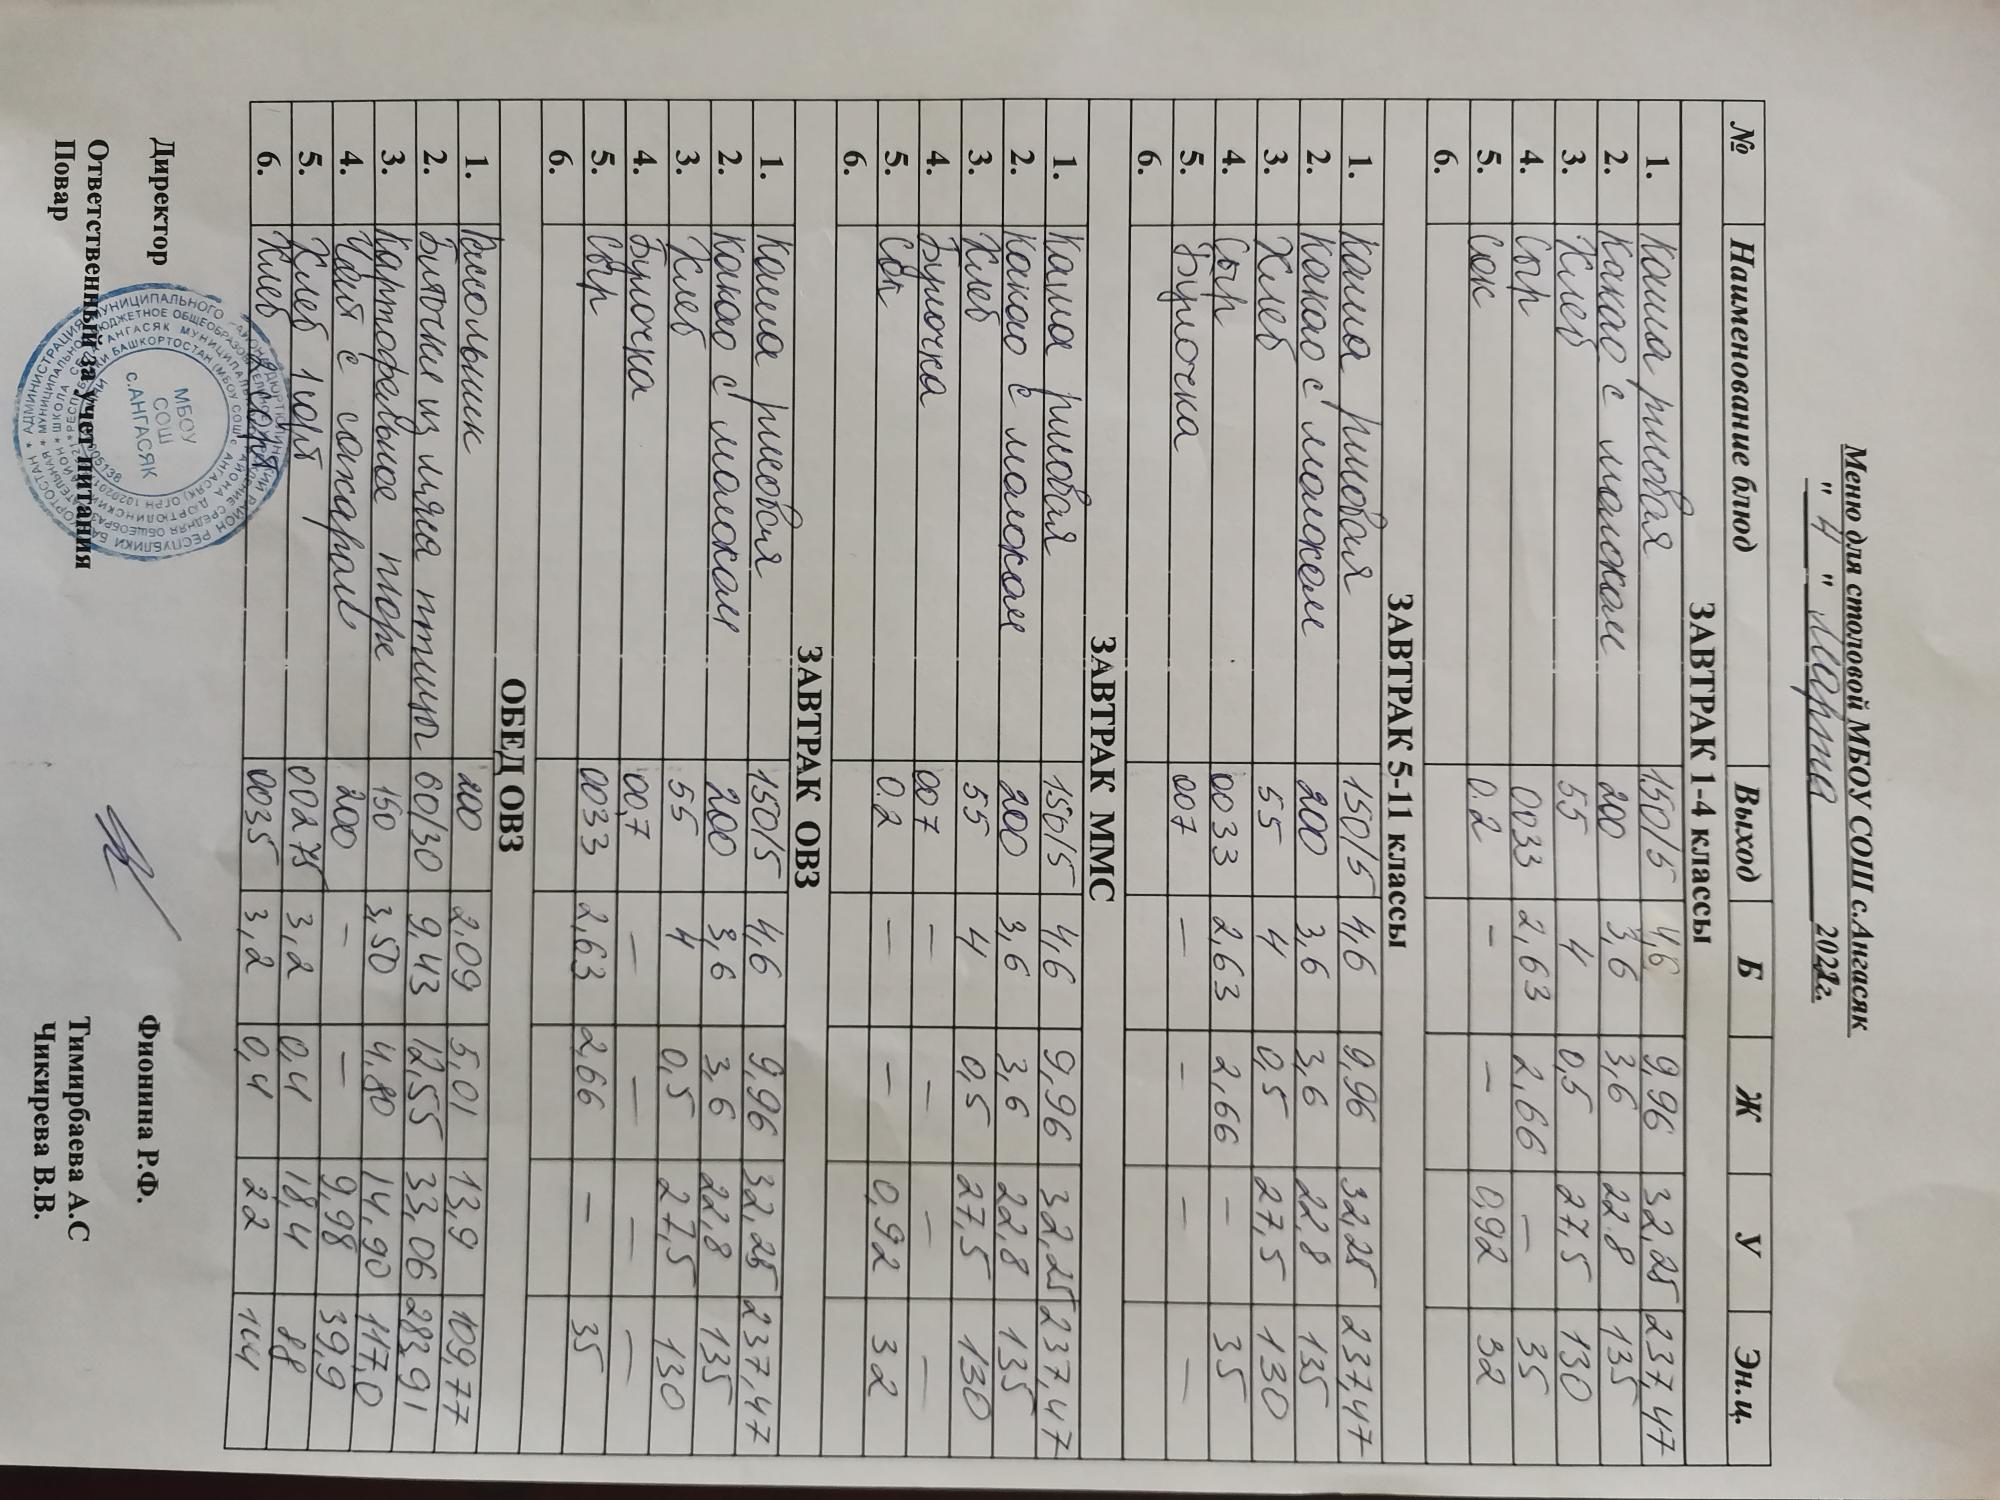 Меню для столовой МБОУ СОШ с.Ангасяк
" 4 " Марта 2022г.
№ Наименование блюд Выход Б Ж У Эн.ц.
ЗАВТРАК 1-4 классы
1. Каша рисовая 150/5 4,6 9,96 32,25 237,47
2. Какао с молоком 200 3,6 3,6 22.8 135
3. Хлеб 55 4 0,5 27,5 130
4. Сыр 0033 2,63 2,66 – 35
5. Сок 0.2 – – 0,92 32
6.
ЗАВТРАК 5-11 классы
1. Каша рисовая 150/5 4,6 9,96 32,25 237,47
2. Какао с молоком 200 3,6 3,6 22,8 135
3. Хлеб 55 4 0,5 27,5 130
4. Сыр 0033 2,63 2,66 – 35
5. Булочка 007 – – – –
6.
ЗАВТРАК ММС
1. Каша рисовая 150/5 4,6 9,96 32,25 237,47
2. Какао с молоком 200 3,6 3,6 22,8 135
3. Хлеб 55 4 0,5 27,5 130
4. Булочка 007 – – – –
5. Сок 0.2 – – 0,92 32
6.
ЗАВТРАК ОВЗ
1. Каша рисовая 150/5 4,6 9,96 32,25 237,47
2. Какао с молоком 200 3,6 3,6 22,8 135
3. Хлеб 55 4 0,5 27,5 130
4. Булочка 00,7 – – – –
5. Сыр 0033 2,63 2,66 – 35
6.
ОБЕД ОВЗ
1. Рассольник 200 2,09 5,01 13,9 109,77
2. Биточки из мяса птицы 60/30 9,43 12,55 33,06 283,91
3. Картофельное пюре 150 3,50 4,80 14,90 117,0
4. Чай с сахаром 200 – – 9,98 39,9
5. Хлеб 1 сорт 00275 3,2 0,4 18,4 88
6. Хлеб 2 сорт 0035 3,2 0,4 22 144
Директор Фионина Р.Ф.
Ответственный за учет питания Тимирбаева А.С
Повар Чикирева В.В.
МБОУ
СОШ
с.АНГАСЯК